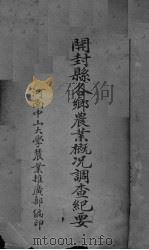 開封縣各鄉農業概況調查紀要
河南中山大學農業推廣部編印